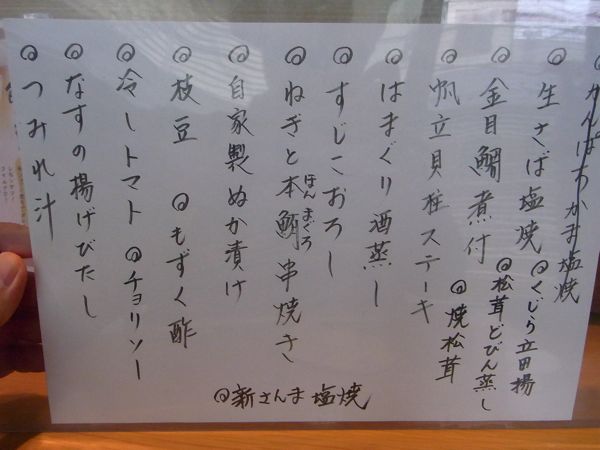 ◎かんぱちかま塩焼
◎生さば塩焼
◎くじら立田揚
◎金目鯛煮付
◎松茸どびん蒸し
◎帆立貝柱ステーキ
◎焼松茸
◎はまぐり酒蒸し
◎すじこおろし
◎ねぎと本鮪串焼き
ほんまぐろ
◎自家製ぬか漬け
◎枝豆
◎もずく酢
◎冷しトマト
◎チョリソー
◎なすの揚げびたし
◎つみれ汁
◎新さんま塩焼